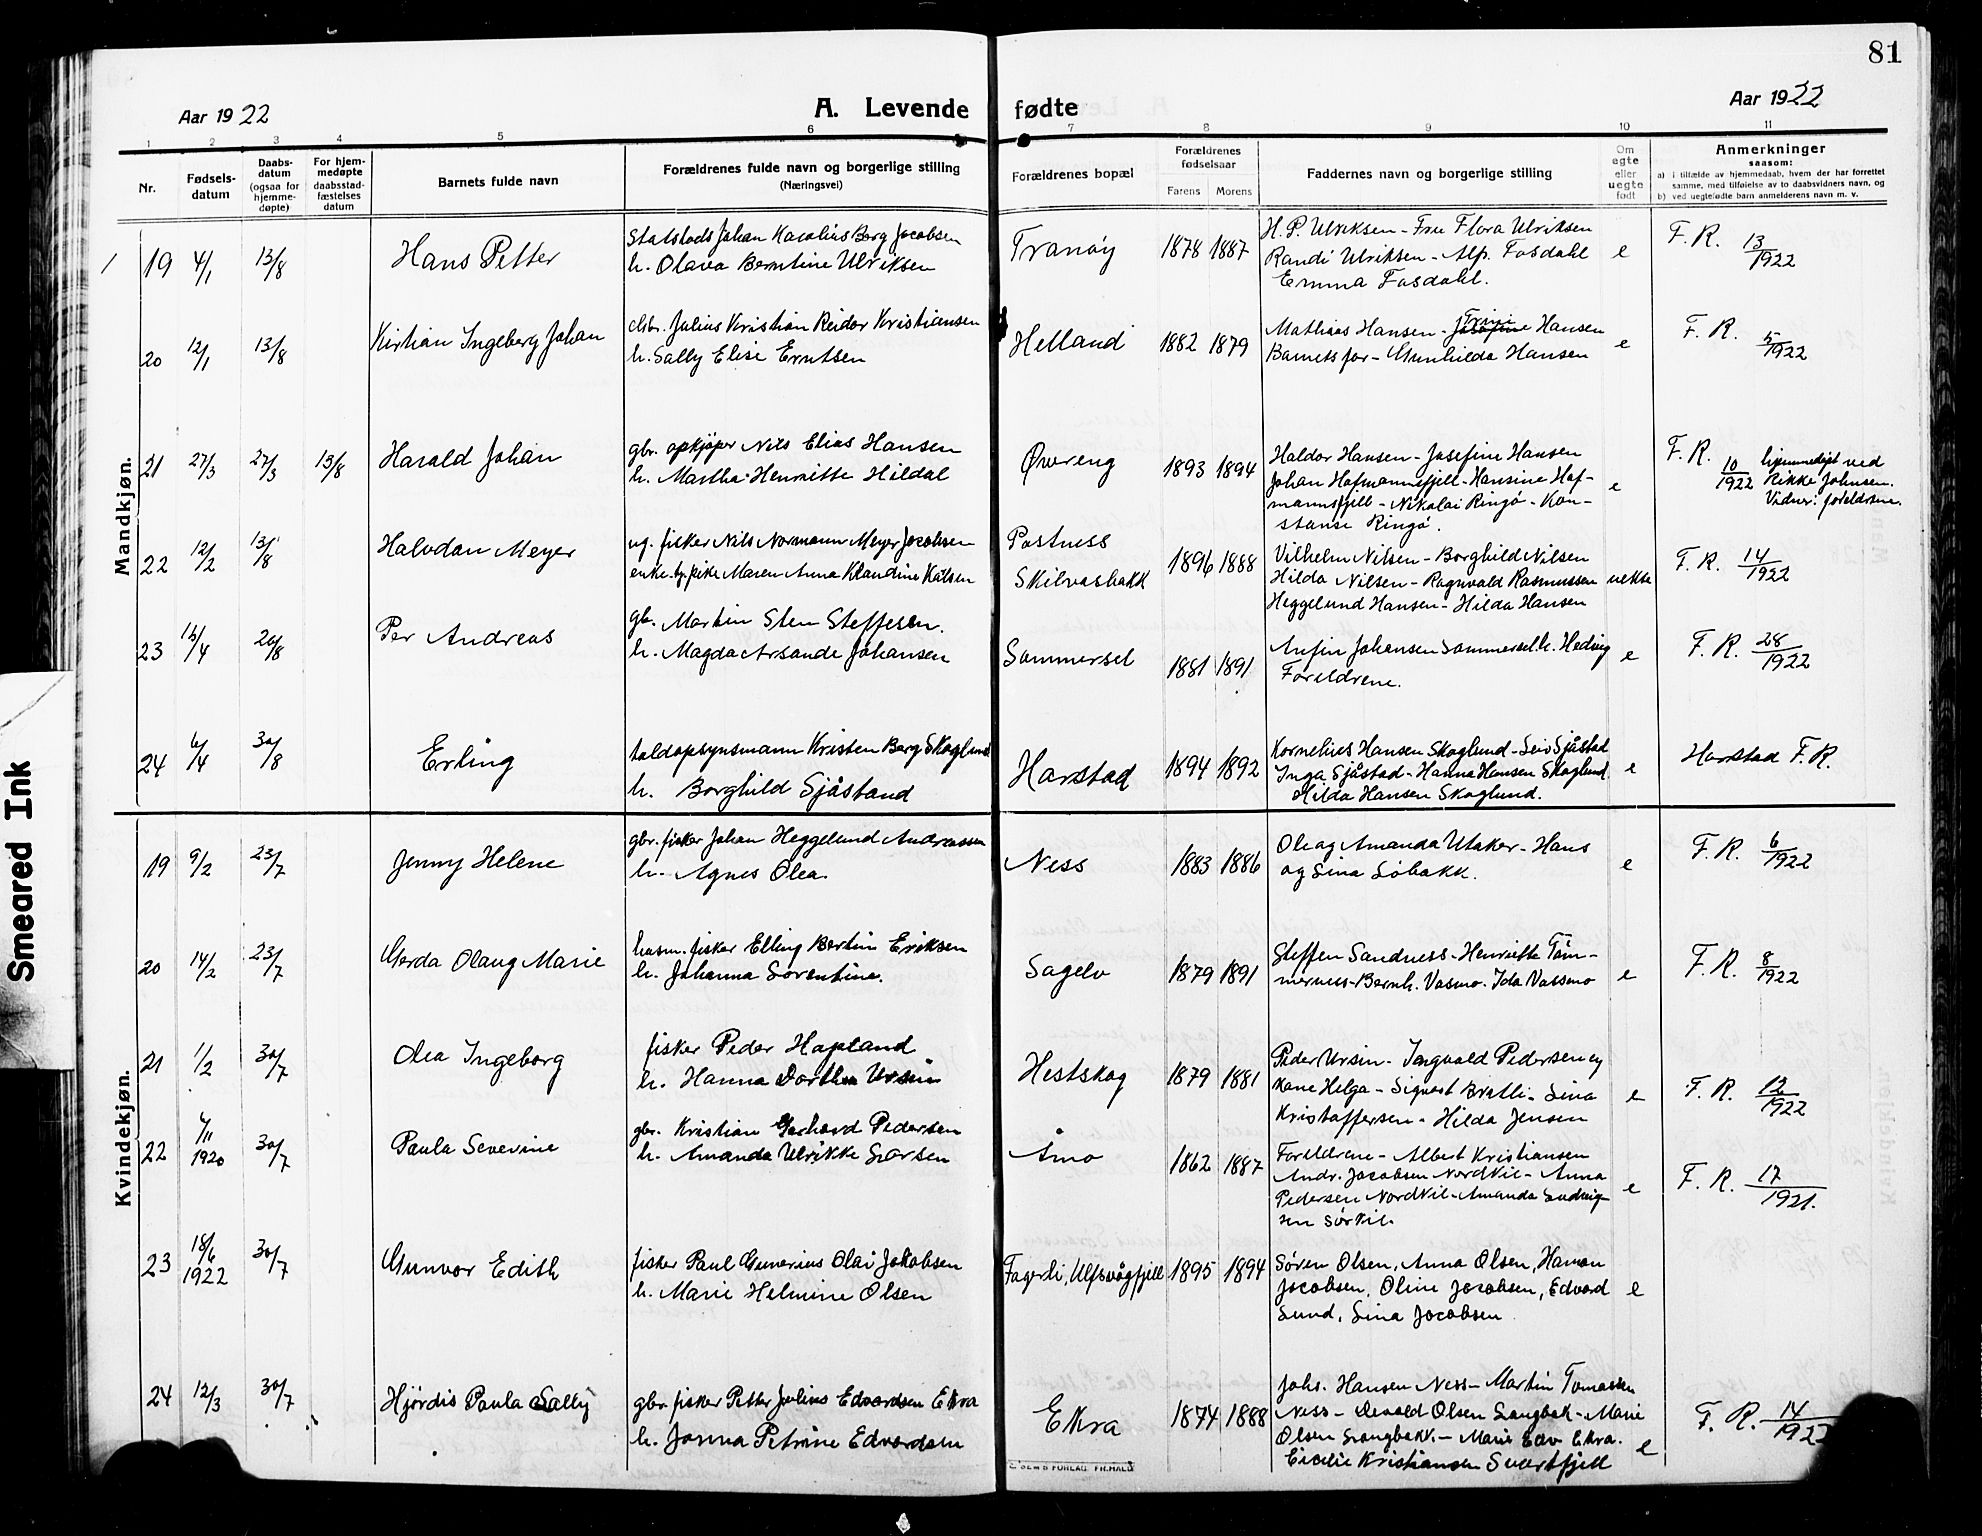 81
Aar 1922 A. Levende fødte Aar 1922
1 2 3 4 5 6 7 8 9 10 11
Nr.
Fødsels-
datum
Daabs-
datum
(ogsaa for
hjemme-
døpte)
For hjem-
medøpte
daabsstad-
fæstelses
datum
Barnets fulde navn
Forældrenes fulde navn og borgerlige stilling
(Næringsvei)
Forældrenes bopæl
Forældrenes
fødselsaar
Farens Morens
Faddernes navn og borgerlige stilling
Om
egte
eller
uegte
født
Anmerkninger
saasom:
a) i tilfælde av hjemmedaab, hvem der har forrettet
samme, med tilføielse av to daabsvidners navn, og
b) ved uegtefødte barn anmelderens navn m. v.
Mandkjøn.
19 4/1 13/8 Hans Petter
Johan Karolius Berg Jacobsen
h. Olava Berntine Ulriksen
Tranøy 1878 1887
H. P. Ulriksen - Fru Flora Ulriksen
Randi Ulriksen - Alf. Fosdahl
Emma Fosdahl.
e F. R. 13/1922
20 12/1 13/8 Kirtian Ingeberg Johan
Julius Kristian Reidar Kristiansen
h. Sally Elise Erntsen
Helland 1882 1879
Mathias Hansen - Trine Hansen
Barnets far - Gunhilda Hansen
e F. R. 5/1922
21 27/3 27/3 13/8 Harald Johan
gbr. opkjøper Nils Elias Hansen
h. Martha Henriette Hildal
Øvereng 1893 1894
Haldor Hansen - Josefine Hansen
Johan Hofmannsfjell - Hansine Hof-
mannsfjell - Nikolai Ringø - Kon-
stanse Ringø.
e F. R. 10/1922 hjemmedøpt ved
Rikke Johnsen.
Vidner: foreldrene.
22 12/2 13/8 Halvdan Meyer
ug. fisker Nils Normann Meyer Jacobsen
Maren Anna Klaudine
1896 1888
Vilhelm Nilsen - Borghild Nilsen
Hilda Nilsen - Ragnvald Rasmussen
Heggelund Hansen - Hilda Hansen
uekte F. R. 14/1922
23 20/8 Per Andreas
gb. Martin Sten Steffesen.
h. Magda Arsande Johansen
Sommersel 1881 1891
Anfin Johansen Sommersel h. Hedvig
Foreldrene.
e F. R. 28/1922
24 6/4 30/8 Erling
toldopsynsmann Kristen Berg Skoglund
h. Borghild Sjåstand
Harstad 1894 1892
Kornelius Hansen Skoglund - Sjåstad
Inga Sjåstad - Hanna Hansen Skoglund.
Hilda Hansen Skoglund.
e Harstad F. R.
Kvindekjøn.
19 9/2 23/7 Jenny Helene
gbr. fisker Johan Heggelund Andreassen
h. Agnes Olea.
Ness 1883 1886
Ole og Amanda Utaker - Hans
og Sina Søbakk.
e F. R. 6/1922
20 14/2 23/7 Gerda Olaug Marie
husm. fisker Elling Bertin Eriksen
h. Johanna Sørentine.
Sagelv 1879 1891
Steffen Sandness - Henriette Tøm-
merness - Bernh. Vasmo. Ida Vassmo
e F. R. 8/1922
21 1/2 30/7 Olea Ingeborg
fisker Peder Hapland
h. Hanna Dorthea Ursin
Hestskog 1879 1881
Peder Ursin - Ingvald Pedersen og
kone Helga - Sigvart Bratli - Sina
Kristoffersen - Hilda Jensen
e F. R. 12/1922
22 1920 30/7 Paula Severine
gbr. Kristian Gerhard Pedersen
h. Amanda Ulrikke Larsen
Åmo 1862 1887
Foreldrene - Albert Kristiansen
Andr. Jacobsen Nordkil - Anna
Pedersen Nordkil - Amanda Ludvig-
sen Sørkil.
e F. R. 17/1921.
23 18/6 1922 30/7 Gunvor Edith
fisker Paul Gunerius Olai Jakobsen
h. Marie Helmine Olsen
Fagerli, Ulfsvågfjell 1895 1894
Søren Olsen, Anna Olsen, Hanon
Jocobsen, Oline Jocobsen, Edvard
Lund, Sina Jocobsen
e
24 12/3 30/7 Hjørdis Paula Sally
gbr. fisker Petter Julius Edvardsen Ekra
h. Jonna Petrine Edvardsen
Ekra 1874 1888
Johs. Hansen Ness - Martin Tomassen
Ness - Olsen Langbak - Marie
Olsen Langbakk. - Marie Edv Ekra.
Cicilie Kristiansen Svartfjell
e F. R. 14/1922
Smeared Ink